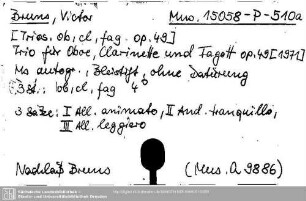 Bruns, Victor Mus. 15058-P-510a
[Trios. ob, cl, fag. op. 49]
Trio für Oboe, Clarinette und Fagott op. 49 [1971]
Ms autogr., Bleistift, ohne Datierung
3 St.: ob, cl, fag 4°
3 Sätze: I All. animato, II And. tranquillo,
III All. leggiero
Nachlaß Bruns (Mus. A 9886)